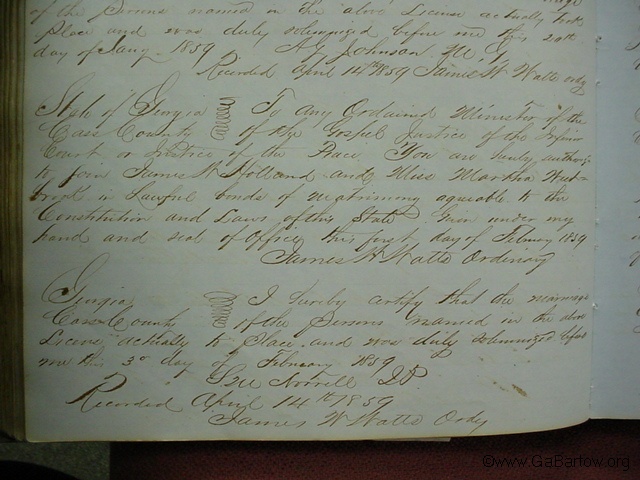 of the Persons named in the above License actually took
Place and was duly solemnized before me this 20th
day of Jany. 1859 A G Johnson M G
Recorded April 14th 1859 James W Watts ordy
State of Georgia To any Ordained Minister of the
Cass County of the Gospel Justice of the Inferior
Court or Justice of the Peace You are hereby authorize
to join James W Holland and Miss Martha West-
brook in Lawful bonds of matrimony agreeable to the
Constitution and Laws of this State Given under my
hand and seal of Office this first day of February 1859
James W Watts Ordinary
Georgia I hereby certify that the marriage
Cass County of the Persons named in the above
License actually to Place and was duly solemnized before
me this 3d day of February 1859
Norvell JP
Recorded April 14th 1859
James W Watts Ordy
©www.GaBartow.org